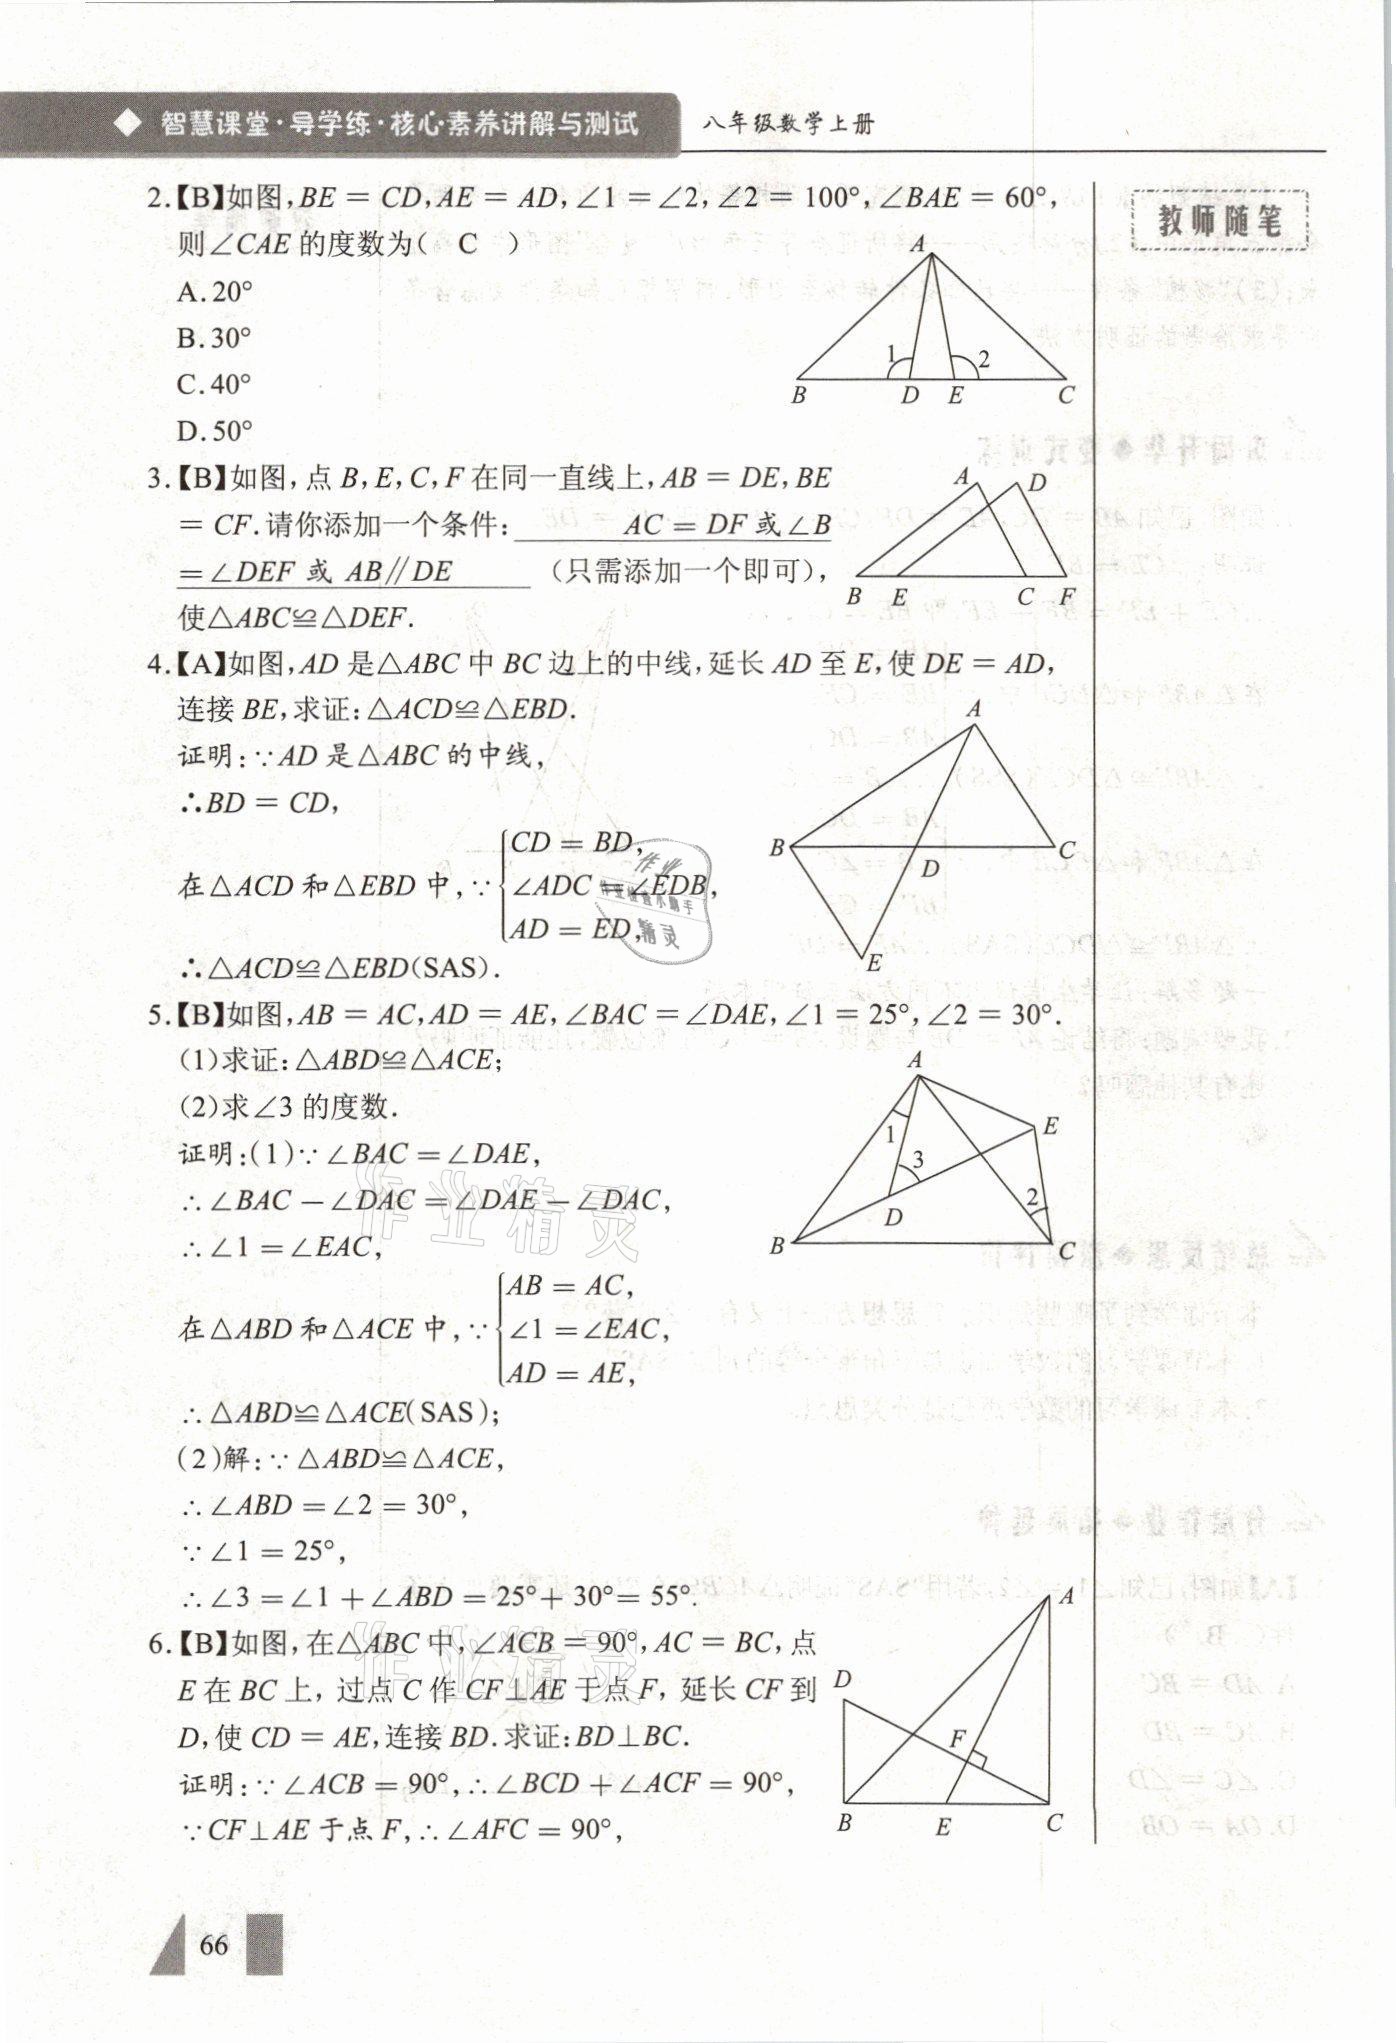 智慧课堂·导学练·核心素养讲解与测试 八年级数学上册
教师随笔
2.【B】如图,BE = CD,AE = AD,∠1=∠2,∠2 = 100°,∠BAE = 60°,
则∠CAE 的度数为( C )
A.20°
B.30°
C.40°
D.50°
A
1
2
B D E C
3.【B】如图,点 B,E,C,F 在同一直线上,AB = DE,BE
= CF.请你添加一个条件: AC = DF 或∠B
=∠DEF 或 AB∥DE (只需添加一个即可),
使△ABC≌△DEF.
A D
B E C F
4.【A】如图,AD 是△ABC 中 BC 边上的中线,延长 AD 至 E,使 DE = AD,
连接 BE,求证:△ACD≌△EBD.
证明:∵AD 是△ABC 的中线,
∴BD = CD,
在△ACD 和△EBD 中,∵
CD = BD,
∠ADC=∠EDB,
AD = ED,
∴△ACD≌△EBD(SAS).
A
B
D
C
E
5.【B】如图,AB = AC,AD = AE,∠BAC=∠DAE,∠1= 25°,∠2 = 30°.
(1)求证:△ABD≌△ACE;
(2)求∠3 的度数.
证明:(1)∵∠BAC=∠DAE,
∴∠BAC-∠DAC=∠DAE-∠DAC,
∴∠1=∠EAC,
在△ABD 和△ACE 中,∵
AB = AC,
∠1=∠EAC,
AD = AE,
∴△ABD≌△ACE(SAS);
(2)解:∵△ABD≌△ACE,
∴∠ABD=∠2 = 30°,
∵∠1= 25°,
∴∠3=∠1+∠ABD= 25°+ 30°= 55°.
A
E
1
3
2
D
B
C
6.【B】如图,在△ABC 中,∠ACB = 90°,AC = BC,点
E 在 BC 上,过点 C 作 CF⊥AE 于点 F,延长 CF 到
D,使 CD = AE,连接 BD.求证:BD⊥BC.
证明:∵∠ACB = 90°,∴∠BCD +∠ACF = 90°,
∵CF⊥AE 于点 F,∴∠AFC = 90°,
A
D
F
B E C
66
作业
作业检查小助手
精灵
作业精灵
作业精灵